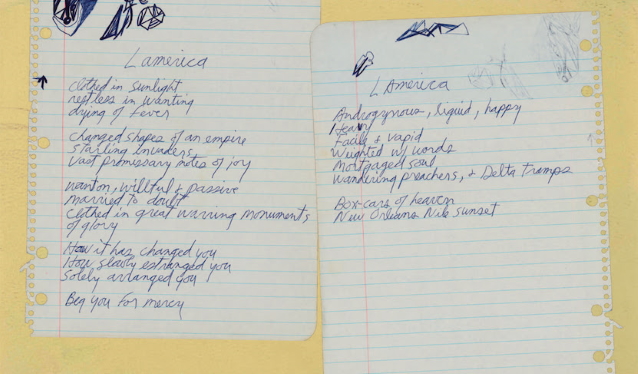 Lamerica
clothed in sunlight
restless in wanting
dying of fever
changed shapes of an empire
starling invaders
vast promissary notes of joy
wanton, willful & passive
married to doubt
clothed in great warring monuments
of glory
How it has changed you
How slowly estranged you
Solely arranged you
Beg you for mercy
L'America
Androgynous, liquid, happy
Heavy
Facile & vapid
Weighted w/ words
Mortgaged soul
wandering preachers, & Delta Tramps
Box-cars of heaven
New Orleans Nile Sunset